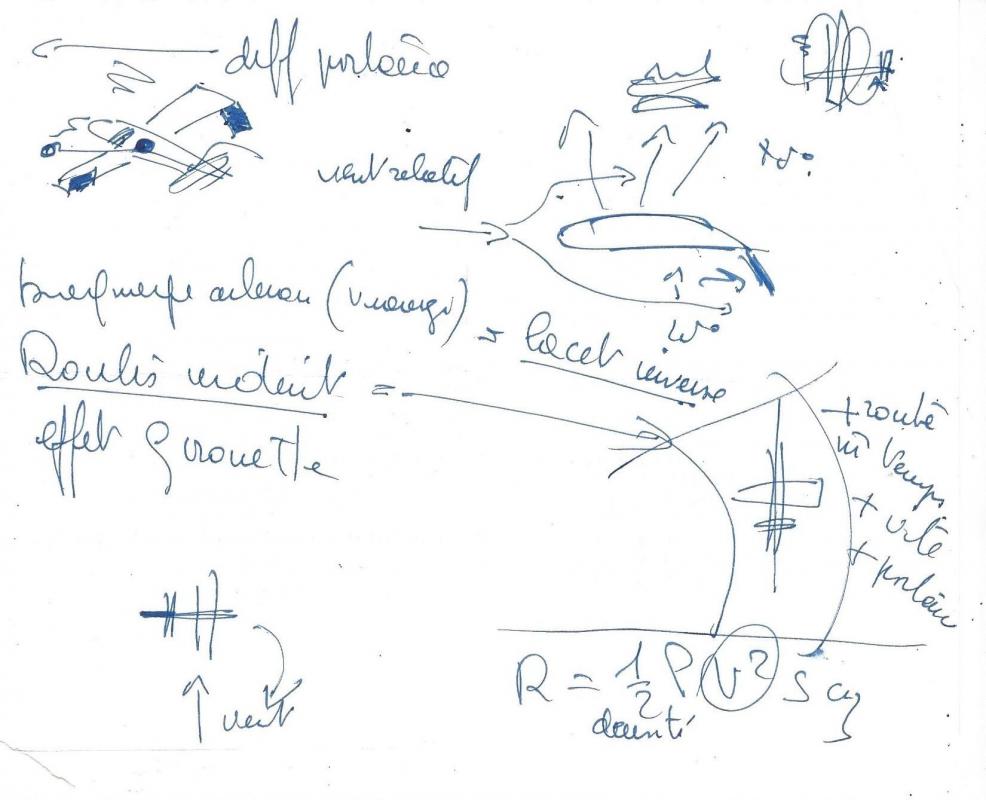 diff portance
vent relatif
+ v°
v°
(virage)
= lacet inverse
Roulis induit =
effet girouette
+ route
m temps
+ vite
+ portan
vent
R = 1/2 ρ V² S cz
densité